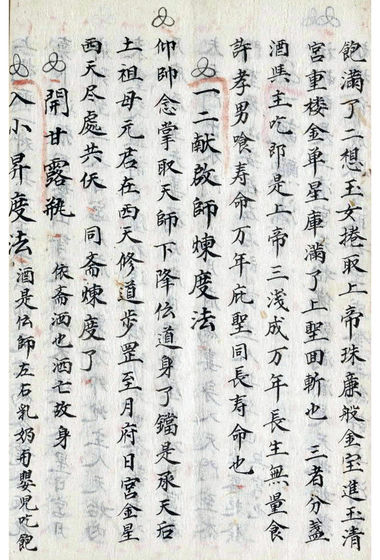 飽滿了二想玉女捲取上帝珠廉般金宝進玉清
宮重楼金单星庫滿了上聖回斬也 三者分盏
酒與主吃郎是上帝三浅成万年長生無量食
許孝男喰寿命万年庇聖同長寿命也
一二献啟師煉度法
仰師念掌取天師下降伝道身了鐺是承天后
土祖母元君在西天修道步罡至月府日宮金星
西天尽處共伝 同斋煉度了
開甘露瓶 依斋洒也洒亡故身
入小昇度法 酒是伝師左右乳奶冇嬰児吃飽